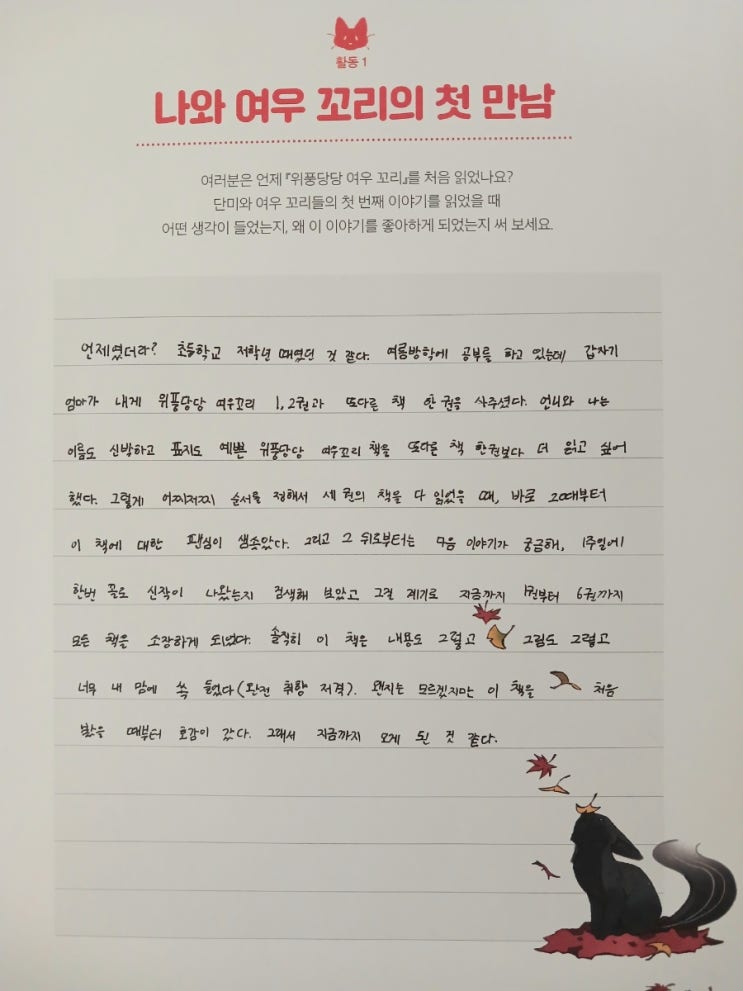 활동 1
나와 여우 꼬리의 첫 만남
여러분은 언제 『위풍당당 여우 꼬리』를 처음 읽었나요?
단미와 여우 꼬리들의 첫 번째 이야기를 읽었을 때
어떤 생각이 들었는지, 왜 이 이야기를 좋아하게 되었는지 써 보세요.
언제였더라? 초등학교 저학년 때였던 것 같다. 여름방학에 공부를 하고 있는데 갑자기
엄마가 내게 위풍당당 여우꼬리 1, 2권과 또다른 책 한 권을 사주셨다. 언니와 나는
이름도 신박하고 표지도 예쁜 위풍당당 여우꼬리 책을 또다른 책 한권보다 더 읽고 싶어
했다. 그렇게 어찌저찌 순서를 정해서 세 권의 책을 다 읽었을 때, 바로 그때부터
이 책에 대한 팬심이 샘솟았다. 그리고 그 뒤로부터는 다음 이야기가 궁금해, 1주일에
한번 꼴로 신작이 나왔는지 검색해 보았고 그걸 계기로 지금까지 1권부터 6권까지
모든 책을 소장하게 되었다. 솔직히 이 책은 내용도 그렇고 그림도 그렇고
너무 내 맘에 쏙 들었다(완전 취향 저격). 왠지는 모르겠지만 이 책을 처음
봤을 때부터 호감이 갔다. 그래서 지금까지 오게 된 것 같다.